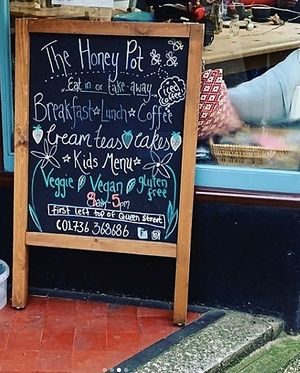 The Honey Pot
Eat in or take-away
Iced
Coffee
Breakfast Lunch Coffee
Cream teas cakes
Kids Menu
Veggie Vegan gluten
free
8am-5pm
first left top of Queen street
01736 368686